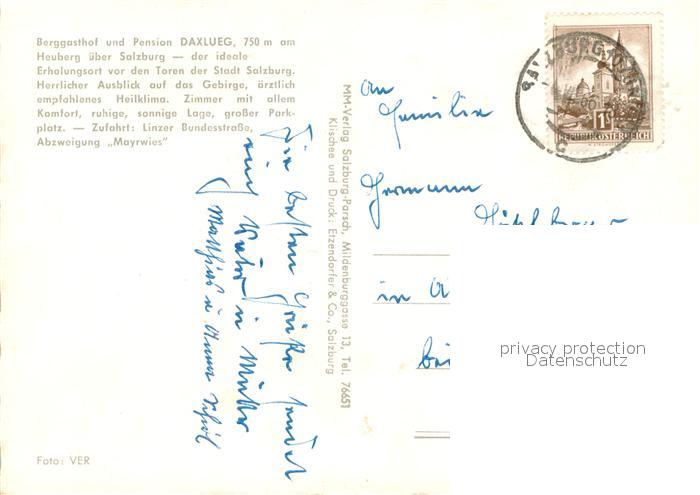 Berggasthof und Pension DAXLUEG, 750 m am
Heuberg über Salzburg — der ideale
Erholungsort vor den Toren der Stadt Salzburg.
Herrlicher Ausblick auf das Gebirge, ärztlich
empfohlenes Heilklima. Zimmer mit allem
Komfort, ruhige, sonnige Lage, großer Park-
platz. — Zufahrt: Linzer Bundesstraße,
Abzweigung „Mayrwies"
Foto: VER
Die besten Grüße sendet
Vater u Mutter
Matthias u Anna
MM-Verlag Salzburg-Parsch, Mildenburggasse 13, Tel. 76651
Klischee und Druck: Etzendorfer & Co., Salzburg
1S
REPUBLIK ÖSTERREICH
SALZBURG
An
Familie
Hermann
in
bei
privacy protection
Datenschutz